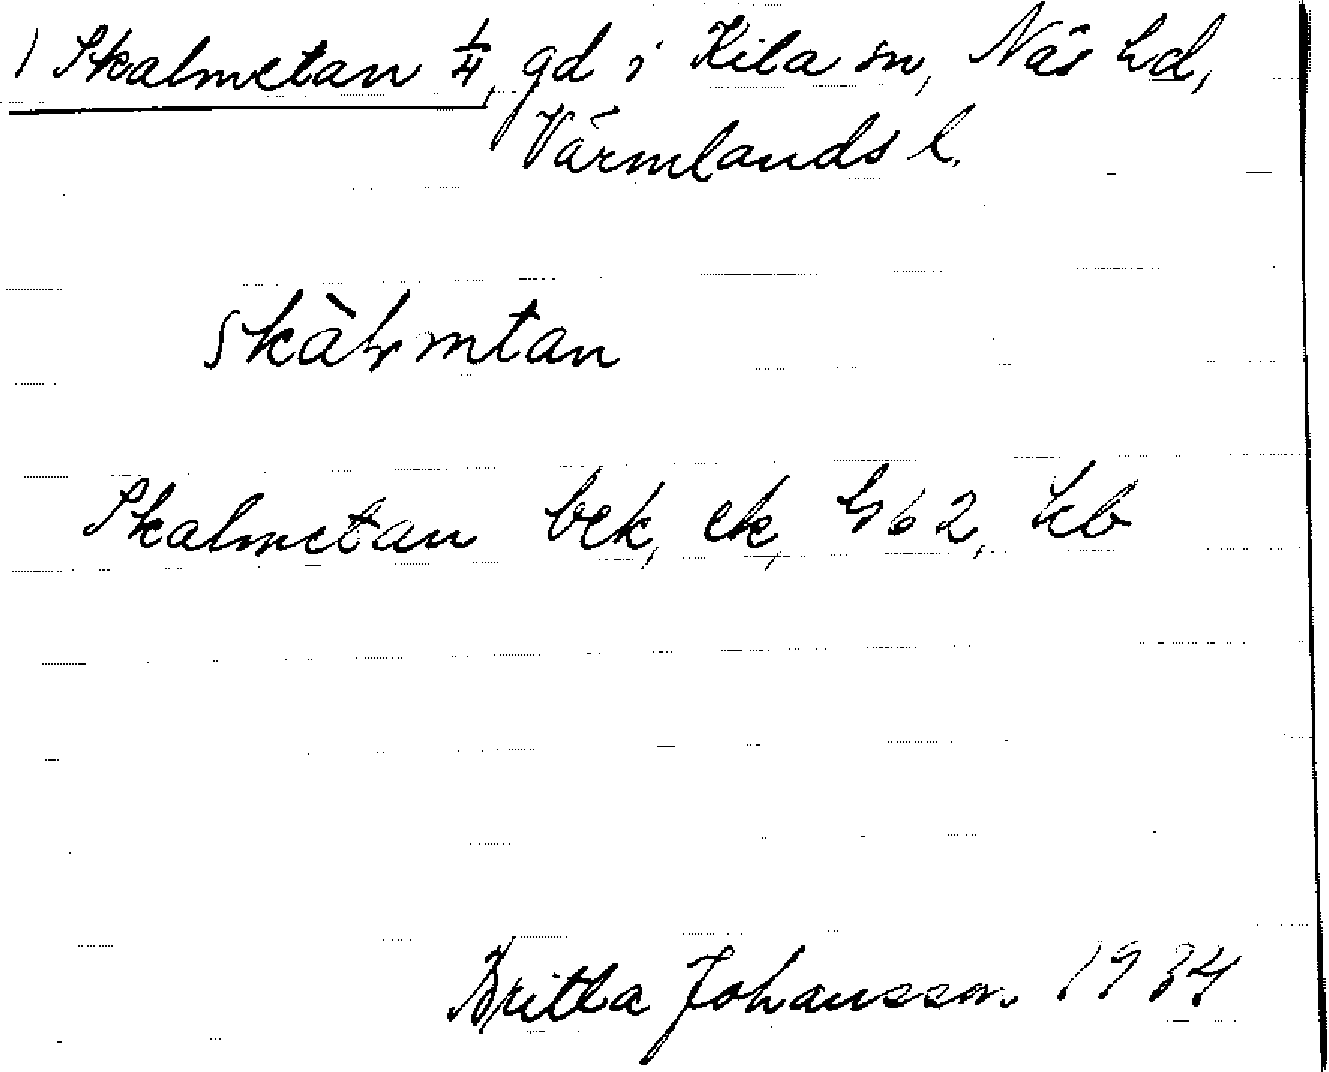 1 Skalmetan 1/4, gd i Kila sn, Näs hd,
Värmlands l.
Skalmetan bek, ek, 62, kb
Britta Johansson 1934